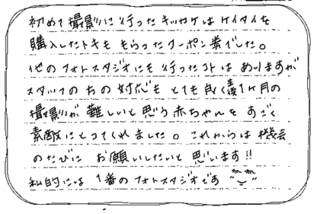 初めて撮影に行ったキッカケはケイタイを
購入したトキもらったクーポン券でした。
他のフォトスタジオにも行ったコトはありますが
スタッフの方の対応もとても良く、1ヶ月の
撮影が難しいと思う赤ちゃんをすごく
素敵にとってくれました。これからは機会
のたびにお願いしたいと思います!!
私的には1番のフォトスタジオです